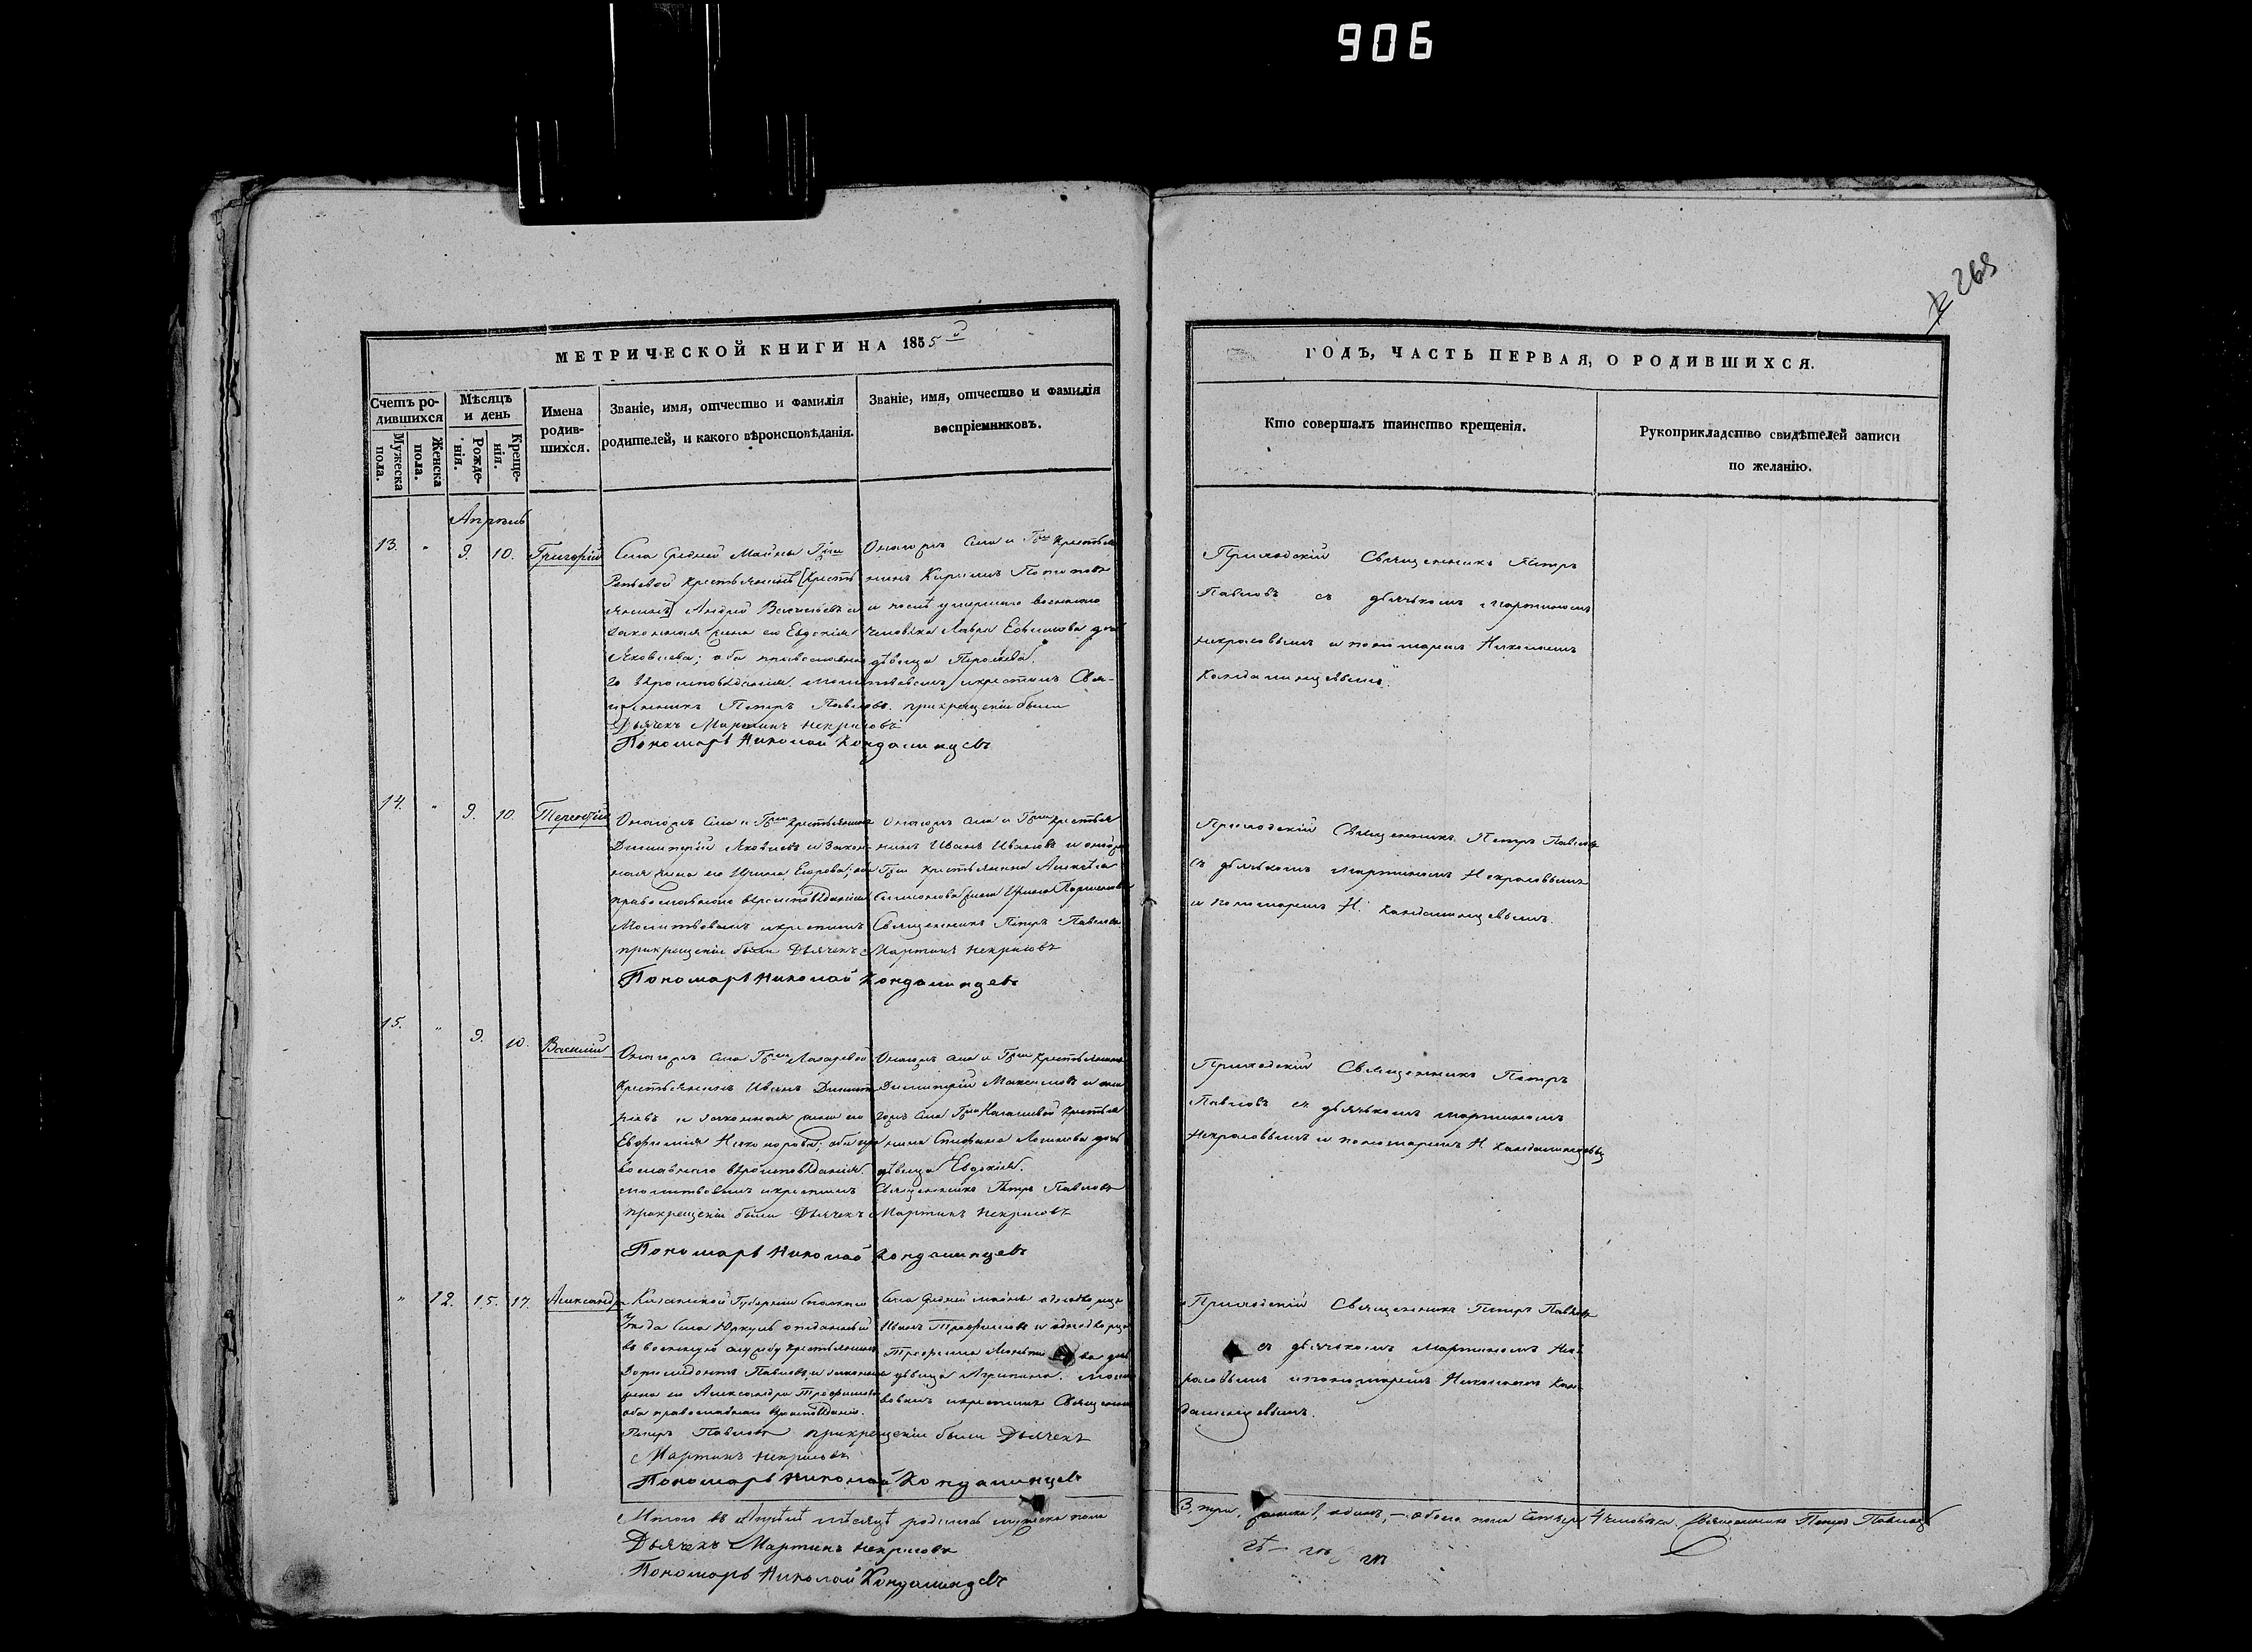 906
269
МЕТРИЧЕСКОЙ КНИГИ НА 1855 й
ГОДЪ, ЧАСТЬ ПЕРВАЯ, О РОДИВШИХСЯ.
Счетъ ро-
дившихся
Мужеска
пола.
Женска
пола.
Мѣсяцъ
и день
Рожде-
нія.
Креще-
нія.
Имена
родив-
шихся.
Званіе, имя, отчество и фамилія
родителей, и какого вѣроисповѣданія.
Званіе, имя, отчество и фамилія
воспріемниковъ.
Кто совершалъ таинство крещенія.
Рукоприкладство свидѣтелей записи
по желанію.
Апрѣль
13. " 9. 10. Григорій
Села Средней Майны Гжи
крестьянинъ [Кресть
янинъ] Андрей Васильевъ и
законная жена его Евдокія
Яковлева; оба православна
го вѣроисповѣданія. Молитвовалъ и крестилъ Свя-
щенникъ Петръ Павловъ. при крещеніи были
Дьячекъ Мартинъ Некрасовъ
Пономарь Николай Кондалинцевъ
Онагожъ Села и Гжи крестья
нинъ Кирилъ Потаповъ
и послѣ умершаго военнаго
человѣка Лавра Ефимова дочь
дѣвица
Приходскій Священникъ Петръ
Павловъ съ дьячкомъ Мартиномъ
Некрасовымъ и пономаремъ Николаемъ
Кандалинцевымъ.
14. " 9. 10. Терентій
Онагожъ Села и Гжи крестьянинъ
Димитрій Яковлевъ и закон-
ная жена его Ирина Егорова; оба
православнаго вѣроисповѣданія
Молитвовалъ и крестилъ Священникъ Петръ Павловъ
при крещеніи были Дьячекъ Мартинъ Некрасовъ
Пономарь Николай Кондалинцевъ
Онагожъ Села и Гжи крестья
нинъ Иванъ Ивановъ и онойже
Гжи крестьянина Алексѣя
Симионова жена Ирина
Приходскій Священникъ Петръ Павловъ
съ дьячкомъ Мартиномъ Некрасовымъ
и пономаремъ Н. Кандалинцевымъ.
15. " 9. 10. Василій
Онагожъ Села Гжи Лазаревой
крестьянинъ Иванъ Димит
ріевъ и законная жена его
Евфимія Никонорова; оба пра
вославнаго вѣроисповѣданія.
молитвовалъ и крестилъ Священникъ Петръ Павловъ
при крещеніи были Дьячекъ Мартинъ Некрасовъ
Пономарь Николай Кондалинцевъ
Онагожъ Села и Гжи крестьянинъ
Димитрій Максимовъ и она
гожъ Села Гжи крестья
нина Стефана Логинова дочь
дѣвица Евдокія.
Приходскій Священникъ Петръ
Павловъ съ дьячкомъ Мартиномъ
Некрасовымъ и пономаремъ Н Кандалинцевы
" 12. 15. 17. Александра
Казанской Губерніи Спаскаго
Уѣзда Села Юркуль отданный
въ военную службу крестьянинъ
Дормидонтъ Павловъ и законная
жена его Александра Трофимова
оба православнаго вѣроисповѣданія.
Петръ Павловъ при крещеніи были Дьячекъ
Мартинъ Некрасовъ
Пономарь Николай Кондалинцевъ
Села Средней Майны однодворецъ
Иванъ Трофимовъ и однодворца
Трофима дочь
дѣвица Агрипина. Молит
вовалъ и крестилъ Священникъ
Приходскій Священникъ Петръ Павловъ
съ дьячкомъ Мартиномъ Нек
расовымъ и пономаремъ Николаемъ Кан
далинцевымъ.
Итого въ Апрѣлѣ мѣсяцѣ родилось мужеска пола
3, три, женска 1, одинъ, — обоего пола четыре 4 человѣка. Священникъ Петръ Павловъ
Дьячекъ Мартинъ Некрасовъ
Пономарь Николай Кондалинцевъ